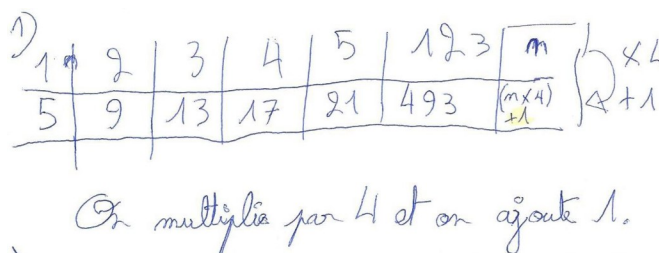 1)
1 2 3 4 5 123 n ×4
5 9 13 17 21 493 (n×4) +1 +1
On multiplie par 4 et on ajoute 1.